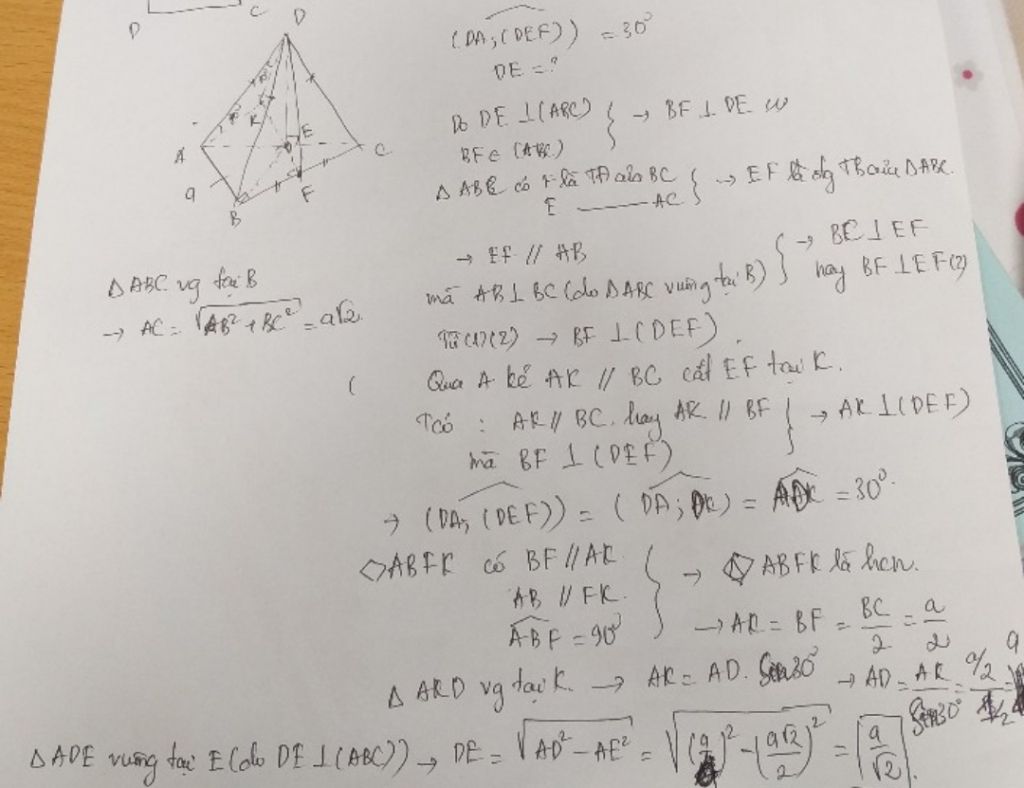 D C
D
A
K
E
C
a
B
F
(DA; (DEF)) = 30°
DE = ?
Do DE ⊥ (ABC)
BF ∈ (ABC)
→ BF ⊥ DE (1)
Δ ABC có F là TĐ của BC
E —— AC
→ EF là đg TB của Δ ABC.
→ EF // AB
mà AB ⊥ BC (do Δ ABC vuông tại B)
→ BC ⊥ EF
hay BF ⊥ EF (2)
Δ ABC vg tại B
→ AC = √(AB² + BC²) = a√2.
Từ (1)(2) → BF ⊥ (DEF).
Qua A kẻ AK // BC cắt EF tại K.
Tcó : AK // BC. hay AK // BF
mà BF ⊥ (DEF)
→ AK ⊥ (DEF)
→ (DA; (DEF)) = (DA; DK) = ADK = 30°.
◇ABFK có BF // AK.
AB // FK.
ABF = 90°
→ ABFK là hcn.
→ AK = BF = BC/2 = a/2
Δ AKD vg tại K. → AK = AD. Sin30° → AD = AK/Sin30° = (a/2)/(1/2) = a
Δ ADE vuông tại E (do DE ⊥ (ABC)) → DE = √(AD² − AE²) = √((a)² − (a√2/2)²) = a/√2.